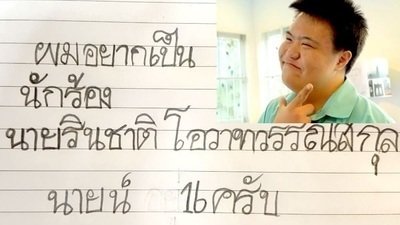 ผมอยากเป็น
นักร้อง
นายรินชาติ โอวาทวรรณสกุล
นายน์ ครับ